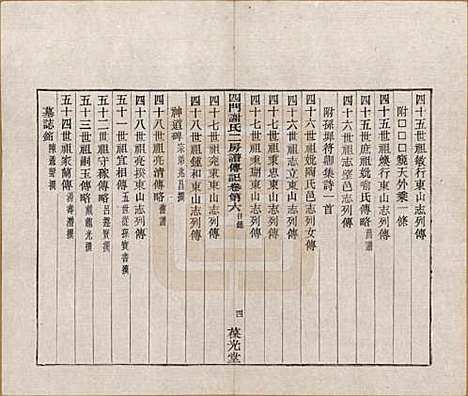 四十五世祖敏行東山志列傳
附口口口窺天外乘一條
四十五世祖燦行東山志列傳
四十五世庶祖兢喻氏傳略
四十六世祖志墀邑志列傳
附孫墀符離集詩一首
四十六世祖妣陶氏邑志列女傳
四十六世祖志立東山志列傳
四十七世祖秉瑚東山志列傳
四十七世祖秉惠東山志列傳
四門謝氏二房譜傳記卷第六 目錄
四
葆光堂
四十七世祖東山志列傳
四十八世祖鍾和東山志列傳
四十八世祖亮清傳略
神道碑
四十八世祖亮揆東山志列傳
五十一世祖宜相傳
五十二世祖守稼傳略
五十三世祖嗣玉傳略
五十四世祖家蘭傳
墓誌銘